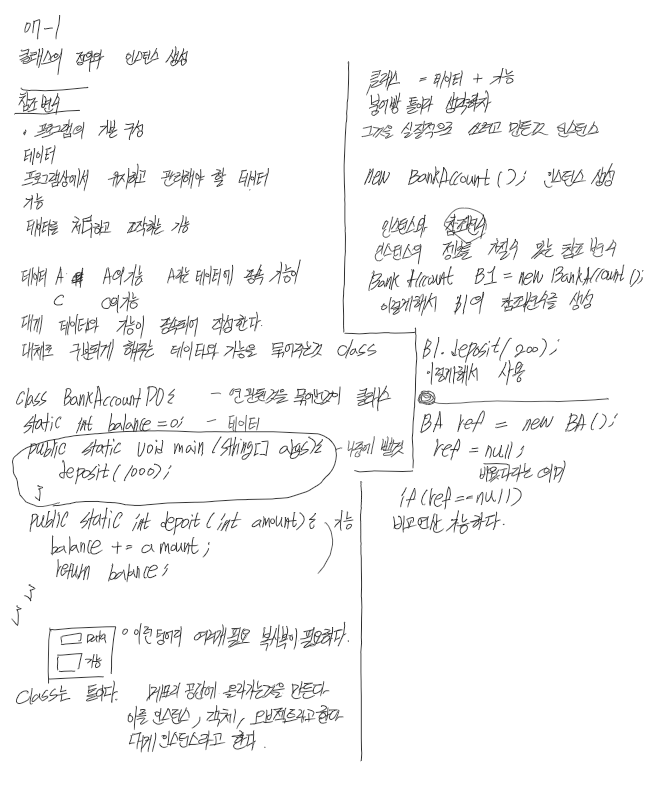 07-1
클래스의 정의와 인스턴스 생성
참조 변수
• 프로그램의 기본 구성
데이터
프로그램상에서 유지하고 관리해야 할 데이터
기능
데이터를 처리하고 조작하는 기능
데이터 A A의기능 A라는 데이터에 종속 기능이
C C의기능
대게 데이터와 기능이 종속되어 작성한다.
대체로 구분되게 해주는 데이터와 기능을 묶어주는것 class
class BankAccountPO { - 연관된것을 묶어논것이 클래스
static int balance = 0; - 데이터
public static void main (String[] args){ - 나중에 뺄것
deposit(1000);
}
public static int depoit (int amount){ 기능
balance += amount;
return balance;
}
}
Data
기능
이런 덩어리 여러개 필요 복사본이 필요하다.
Class는 틀이다. 메모리 공간에 올라가는것을 만든다
이를 인스턴스, 객체, 오브젝트라고한다
대게 인스턴스라고 한다.
클래스 = 데이터 + 기능
붕어빵 틀이라 생각하자
그것을 실질적으로 찍고 만든것 인스턴스
new BankAccount(); 인스턴스 생성
인스턴스와 참조변수
인스턴스의 정보를 가질수 있는 참조 변수
Bank Account B1 = new BankAccount();
이렇게해서 B1의 참조변수를 생성
B1.deposit(200);
이렇게해서 사용
BA ref = new BA();
ref = null;
비웠다라는 의미
if(ref==null)
비교연산 가능하다.